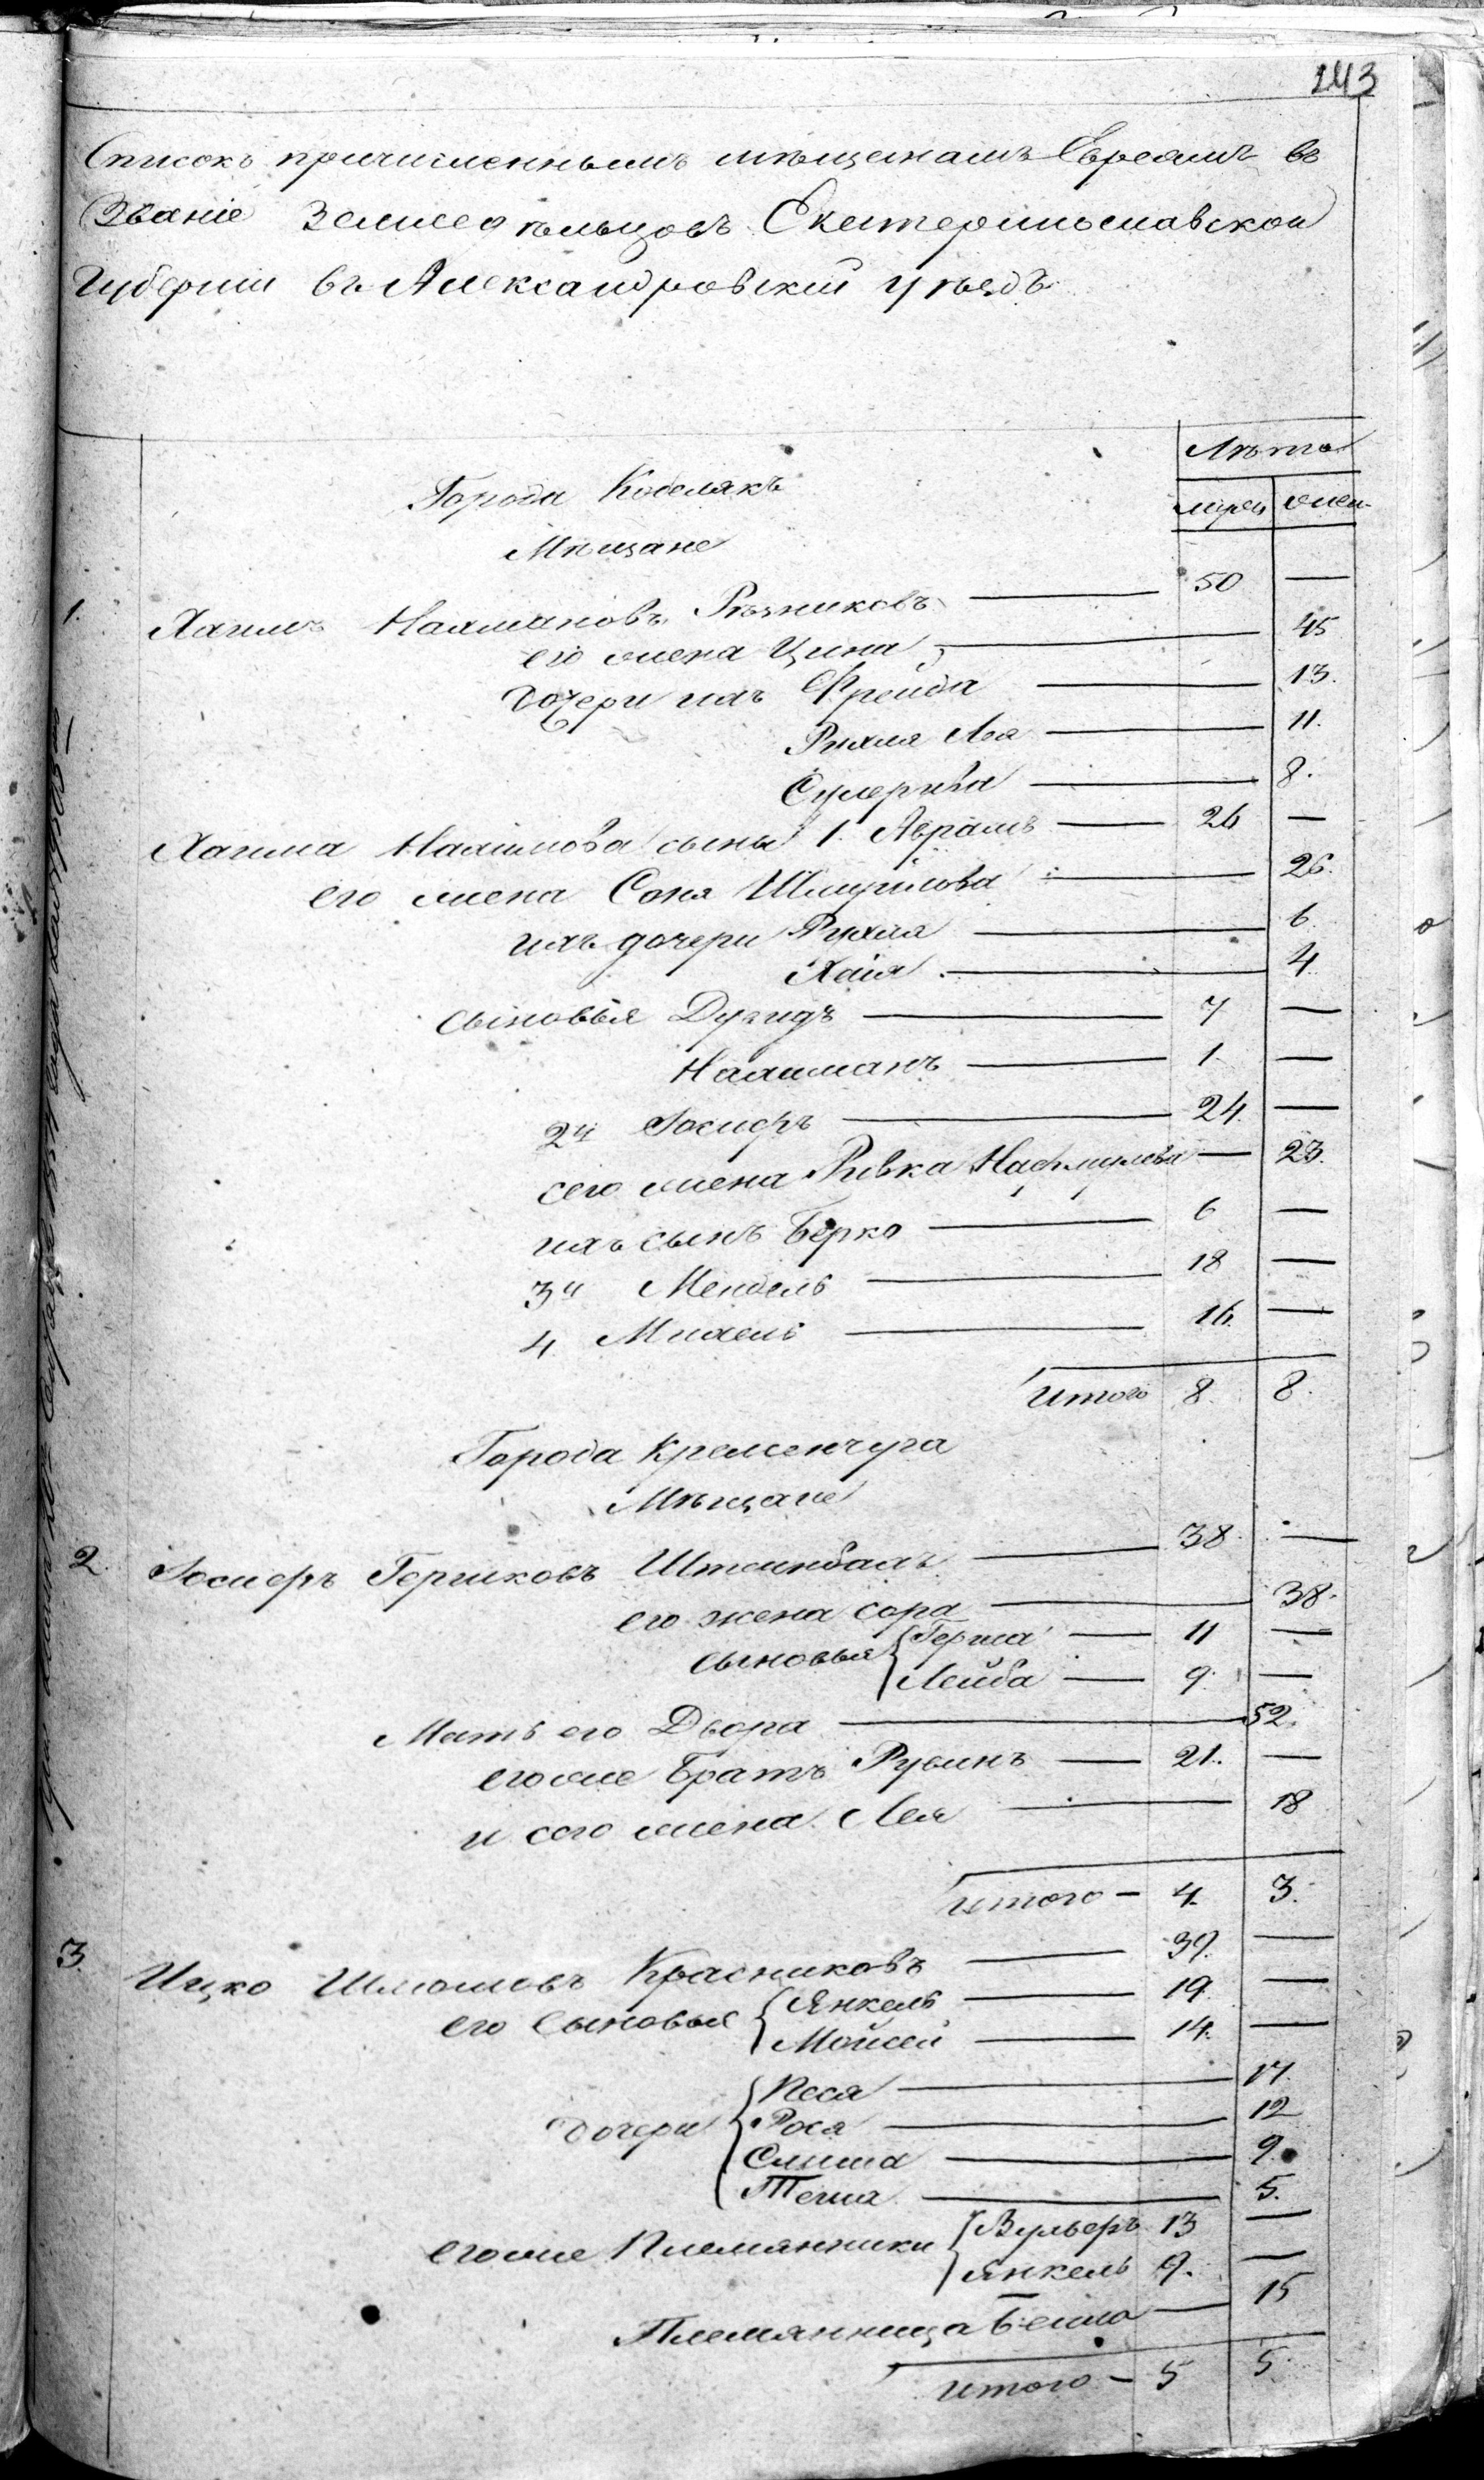 243
Списокъ причисленнымъ мѣщанамъ Евреямъ въ
Званіе Земледѣльцовъ Екатеринославской
Губерніи въ Александровскій уѣздъ
Лѣта
Города Кобелякъ
муж. жен.
Мѣщане
1. Хаимъ Нахмановъ Рѣзниковъ — 50 —
его жена Цина — 45
дочери ихъ Фрейда — 13.
Рихля Лея — 11.
— 8.
Хаима Нахимова сыны 1. Абрамъ — 26 —
его жена Соня Шмуйлова — 26.
ихъ дочери Рухля — 6
Хаія — 4
сыновья — 7 —
Нахиманъ — 1. —
2й Іосифъ — 24. —
сего жена Ривка — 23.
ихъ сынъ Берко — 6 —
3й Мендель — 18 —
4 Михель — 16. —
Итого 8. 8.
Города Кременчуга
Мѣщане
2. Іосифъ Гершковъ — 38. —
его жена Сора — 38.
сыновья { Герша — 11 —
Лейба — 9. —
Мать его Двора — 52.
егоже Братъ Рувинъ — 21. —
и сего жена Лея — 18
Итого — 4. 3.
3. Ицко Шлюмовъ Красниковъ — 39. —
его сыновья { Янкель — 19. —
Мойсей — 14. —
дочери { Песя — 17.
Рося — 12
— 9.
— 5.
егоже Племянники { Вульфъ 13 —
Янкель 9. —
Племянница Бейла — 15
Итого — 5 5.